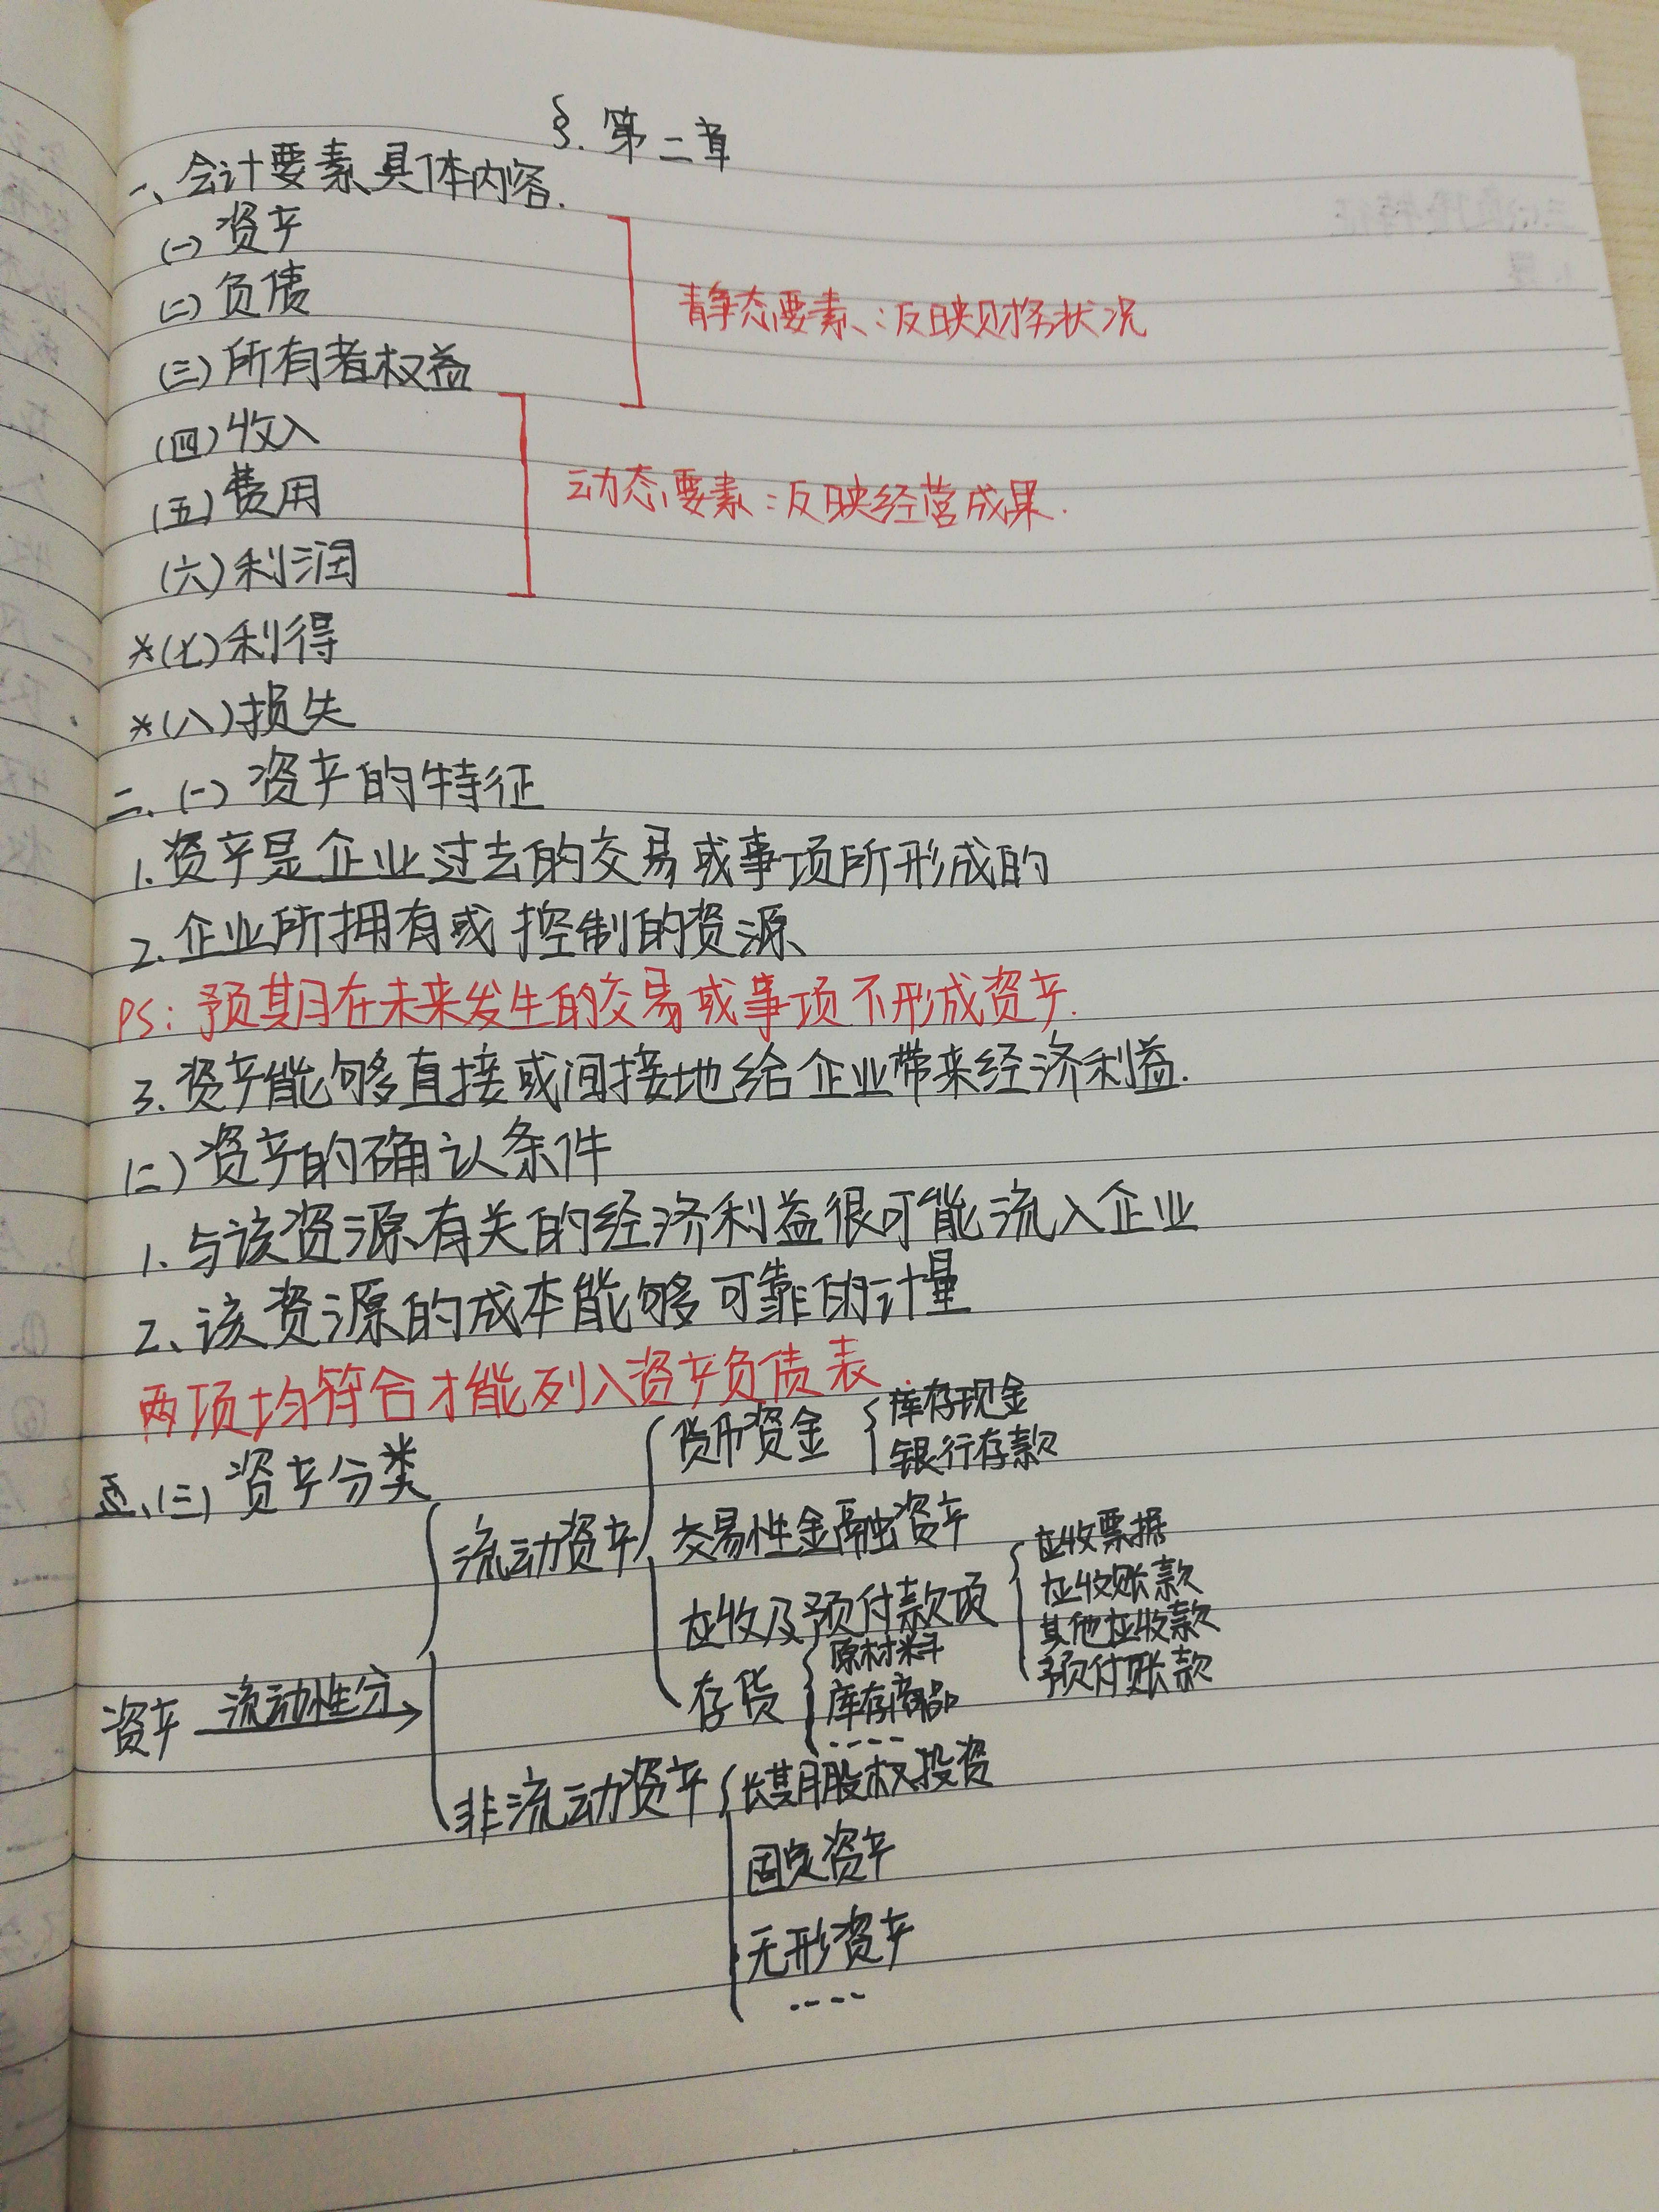 §. 第二章
一、会计要素具体内容.
(一) 资产
(二) 负债
(三) 所有者权益
静态要素:反映财务状况
(四) 收入
(五) 费用
(六) 利润
动态要素:反映经营成果.
*(七) 利得
*(八) 损失
二、(一) 资产的特征
1. 资产是企业过去的交易或事项所形成的
2. 企业所拥有或控制的资源
PS: 预期在未来发生的交易或事项不形成资产.
3. 资产能够直接或间接地给企业带来经济利益.
(二) 资产的确认条件
1. 与该资源有关的经济利益很可能流入企业
2、该资源的成本能够可靠的计量
两项均符合才能列入资产负债表.
(三) 资产分类
资产 流动性分
流动资产
货币资金
库存现金
银行存款
交易性金融资产
应收及预付款项
应收票据
应收账款
其他应收款
预付账款
存货
原材料
库存商品
....
非流动资产
长期股权投资
固定资产
无形资产
....